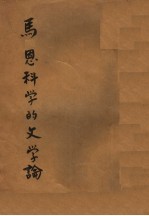 馬恩科学的文学論